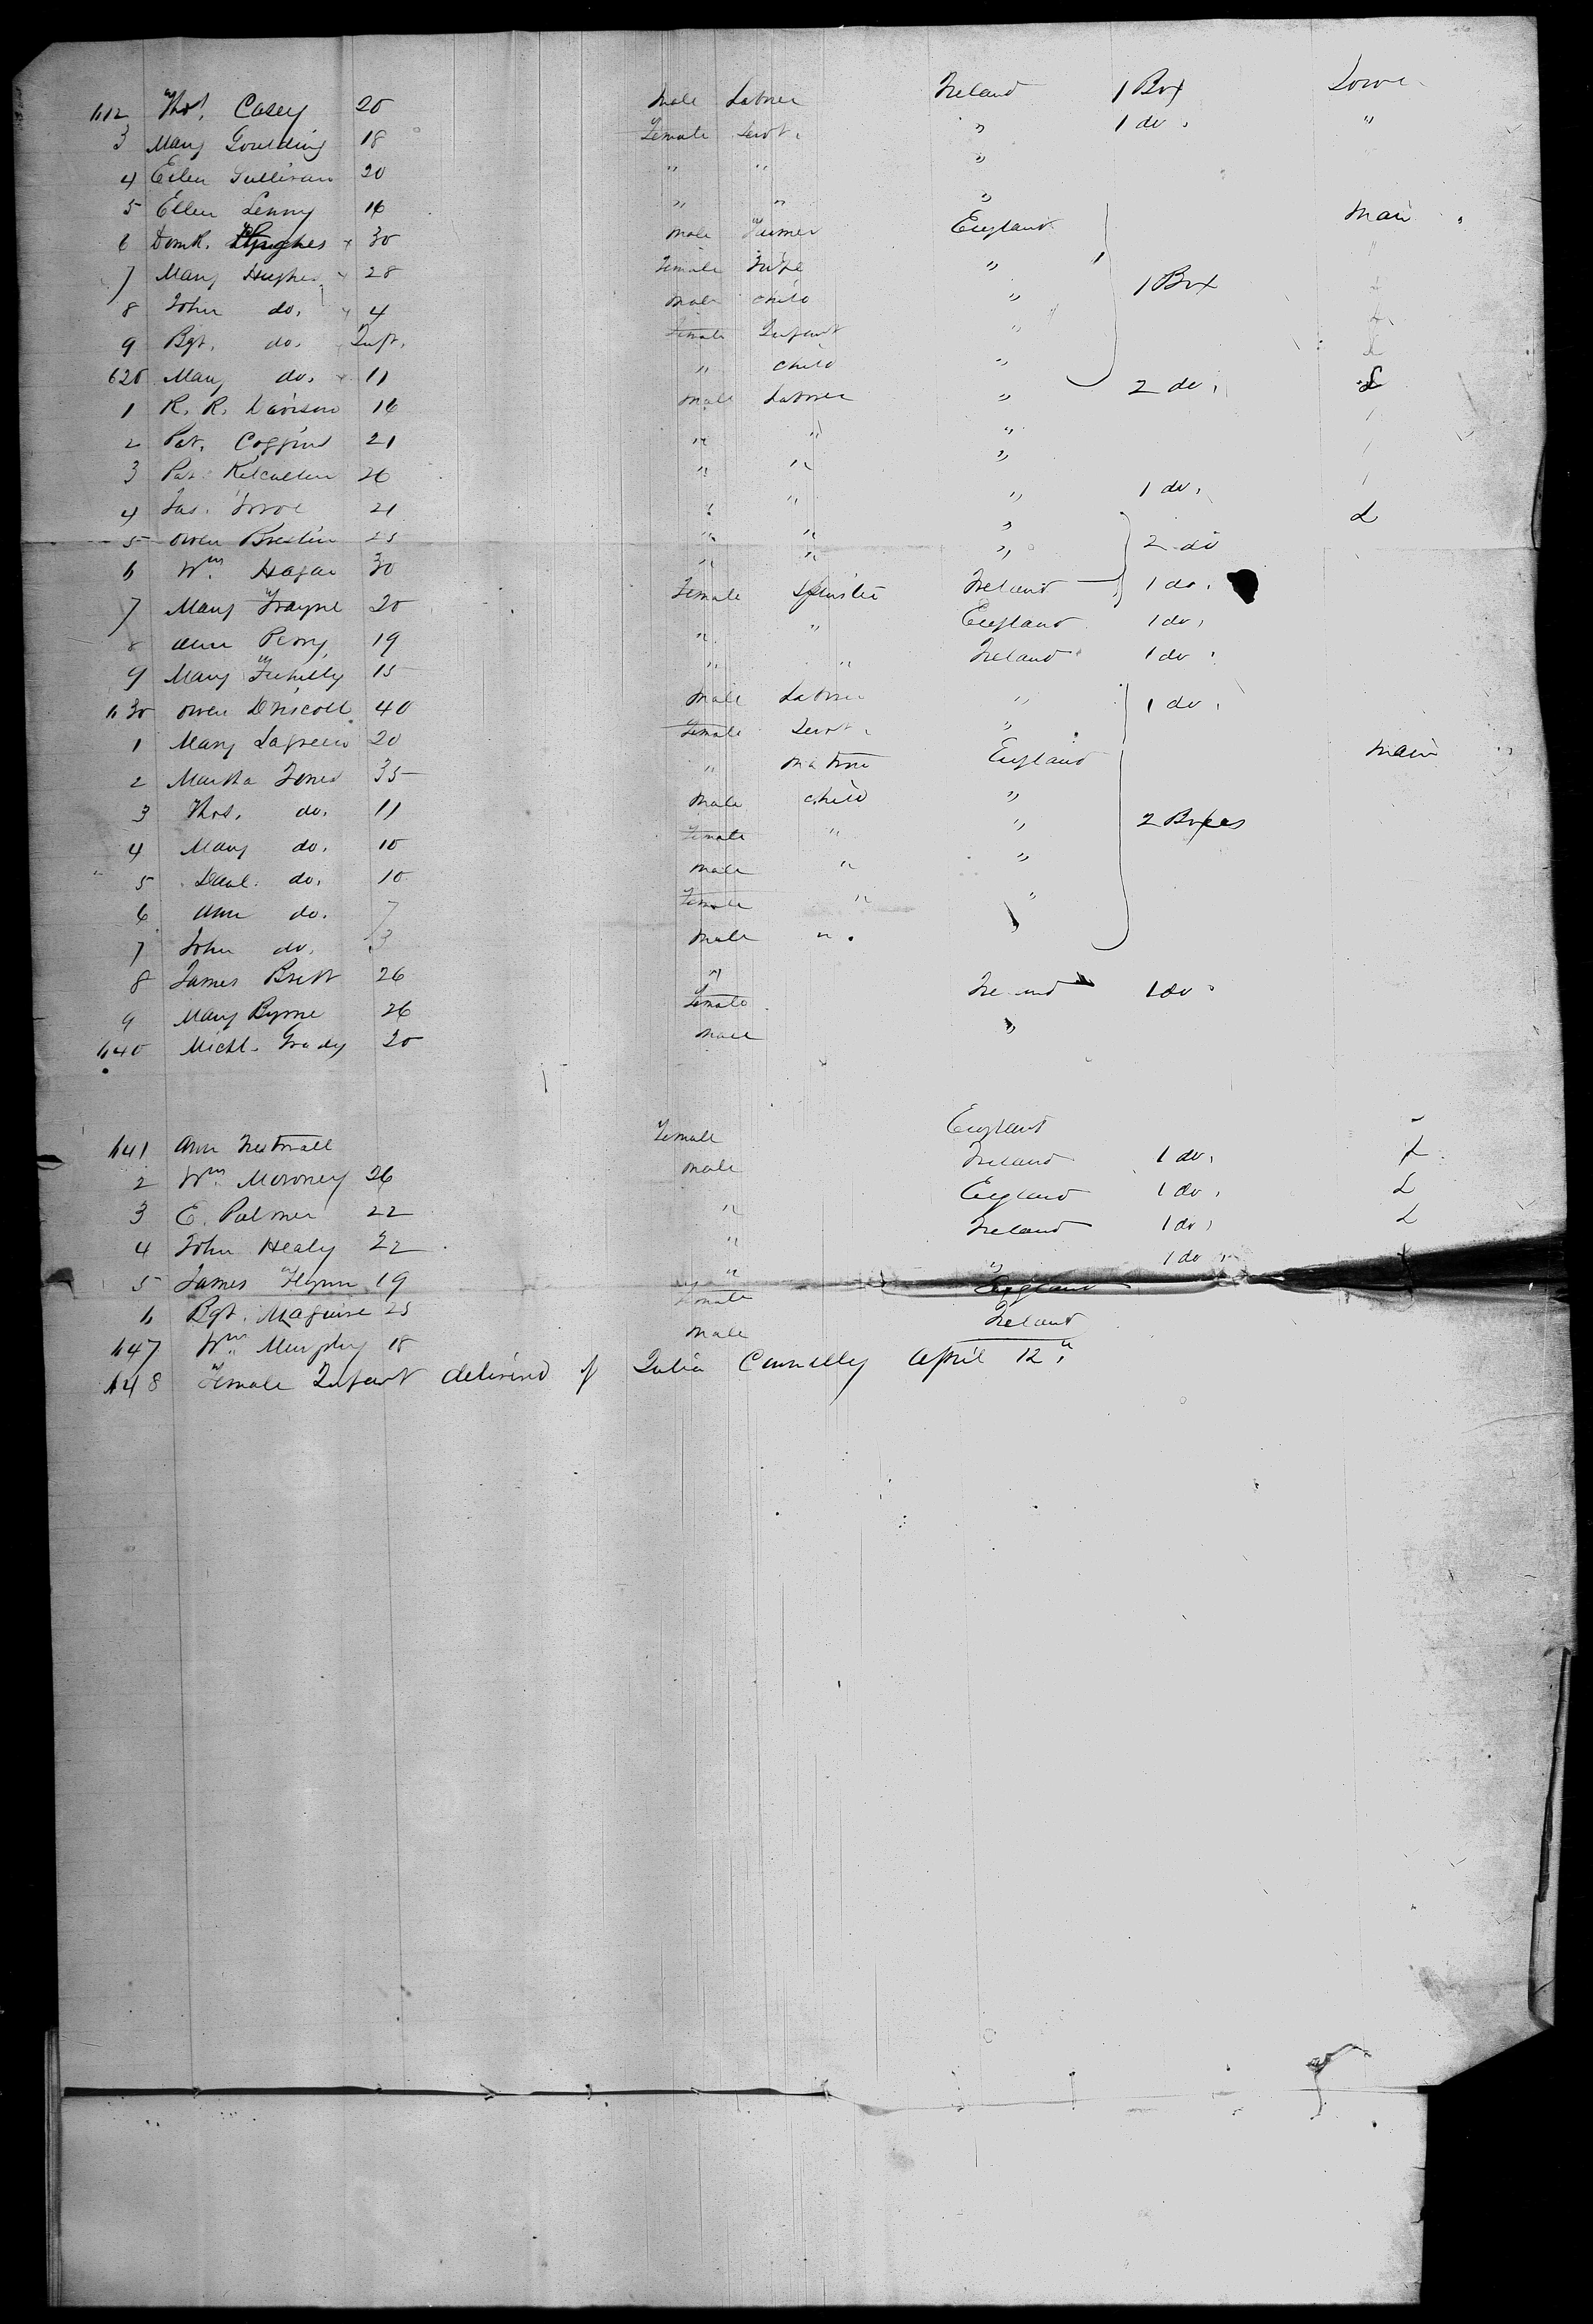 612 Thos. Casey 20 Male Labrer Ireland 1 Box Lower
3 Mary Goulding 18 Female Servt. " 1 do. "
4 Ellen Sullivan 20 " " "
5 Ellen Lenny 16 " " "
6 Domk. Hughes x 30 Male Farmer England Main
7 Mary Hughes 28 Female Wife " 1 Box
8 John do. 4 Male Child "
9 Bgt. do. Inft. Female Infant "
620 Mary do. 11 " Child "
1 R. R. Davison 16 Male Labrer " 2 do. L
2 Pat. Coggins 21 " " "
3 Pat. Kilcullen 26 " " "
4 Jas. 21 " " " 1 do.
5 Owen Breslin 25 " " " L
6 Wm. Hagan 30 " " " 2 do
7 Mary Frayne 20 Female Spinster Ireland 1 do.
8 Ann Perry 19 " " England 1 do.
9 Mary 15 " " Ireland 1 do.
630 Owen Driscoll 40 Male Labrer " 1 do.
1 Mary 20 Female Servt. "
2 Martha Jones 35 " Matron England Main
3 Thos. do. 11 Male Child "
4 Mary do. 10 Female " " 2 Boxes
5 do. 10 Male " "
6 Ann do. 7 Female " "
7 John do. 3 Male " "
8 James Brett 26 "
9 Mary Byrne 26 Female Ireland 1 do.
640 Michl. Grady 20 Male "
641 Ann Female England
2 Wm. Moroney 26 Male Ireland 1 do. L
3 E. Palmer 22 " England 1 do. L
4 John Healy 22 " Ireland 1 do. L
5 James Flynn 19 " " 1 do
6 Bgt. Maguire 25 Female England
647 Wm. Murphy 18 Male Ireland
648 Female Infant delivered of Julia Connelly April 12"